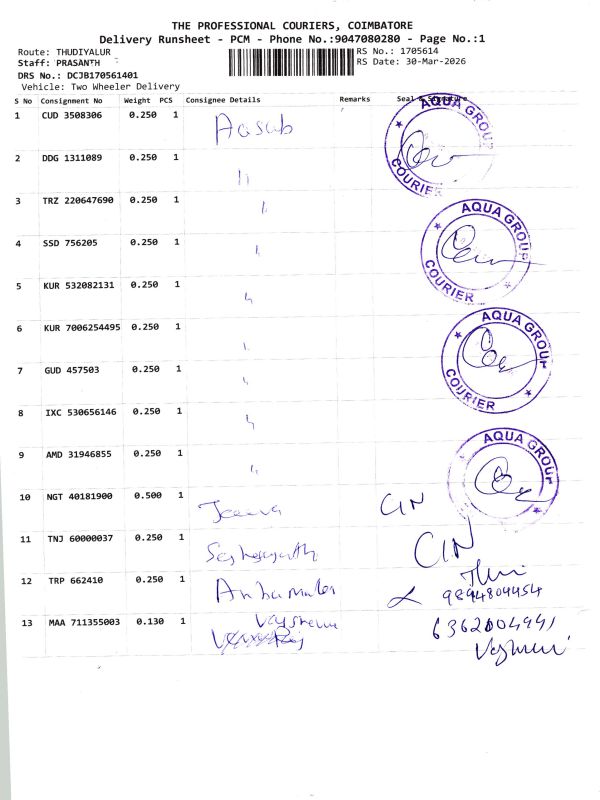 THE PROFESSIONAL COURIERS, COIMBATORE
Delivery Runsheet - PCM - Phone No.:9047080280 - Page No.:1
Route: THUDIYALUR RS No.: 1705614
Staff: PRASANTH RS Date: 30-Mar-2026
DRS No.: DCJB170561401
Vehicle: Two Wheeler Delivery
S No Consignment No Weight PCS Consignee Details Remarks Seal & Signature
1 CUD 3508306 0.250 1 AQUA GROUP COURIER
2 DDG 1311089 0.250 1 "
3 TRZ 220647690 0.250 1 "
4 SSD 756205 0.250 1 " AQUA GROUP COURIER
5 KUR 532082131 0.250 1 "
6 KUR 7006254495 0.250 1 " AQUA GROUP COURIER
7 GUD 457503 0.250 1 "
8 IXC 530656146 0.250 1 "
9 AMD 31946855 0.250 1 " AQUA GROUP COURIER
10 NGT 40181900 0.500 1 Jeeva CIN
11 TNJ 60000037 0.250 1 CIN
12 TRP 662410 0.250 1 9894804454
13 MAA 711355003 0.130 1 6362004991